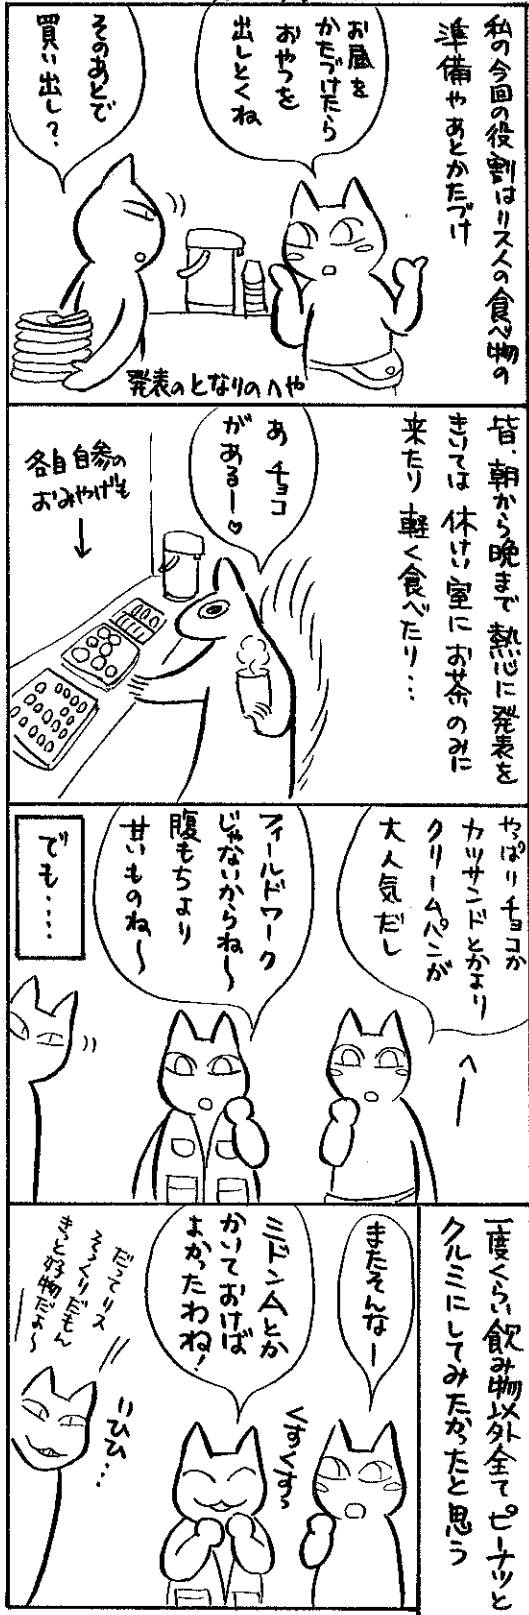 私の今回の役割はリス人の食べ物の
準備やあとかたづけ
お昼を
かたづけたら
おやつを
出しとくね
そのあとで
買い出し?
発表のとなりのへや
皆、朝から晩まで熱心に発表を
きいては休けい室にお茶のみに
来たり軽く食べたり…
あ チョコ
があるー♡
各自自参の
おみやげも
やっぱりチョコか
カツサンドとかより
クリームパンが
大人気だし
へー
フィールドワーク
じゃないからね〜
腹もちより
甘いものね〜
でも‥‥
一度くらい飲み物以外全てピーナツと
クルミにしてみたかったと思う
またそんなー
くすくすっ
ミドン人とか
かいておけば
よかったわね!
だってリス
そっくりだもん
きっと好物だよ〜
リひひ…